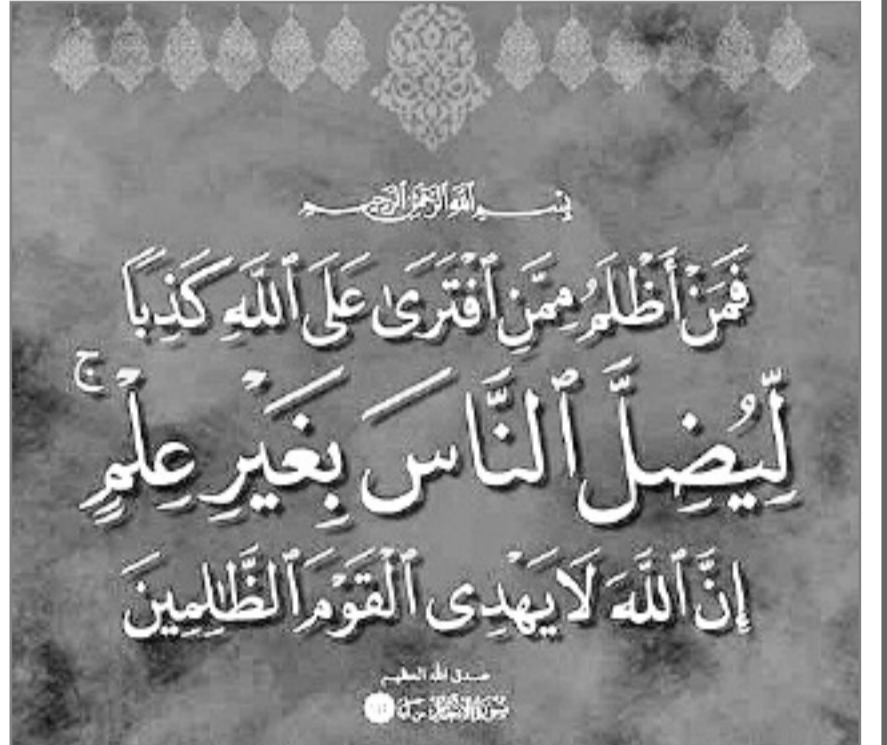 بِسْمِ ٱللَّهِ ٱلرَّحْمَٰنِ ٱلرَّحِيمِ
فَمَنْ أَظْلَمُ مِمَّنِ ٱفْتَرَىٰ عَلَى ٱللَّهِ كَذِبًا
لِّيُضِلَّ ٱلنَّاسَ بِغَيْرِ عِلْمٍ ۚ
إِنَّ ٱللَّهَ لَا يَهْدِى ٱلْقَوْمَ ٱلظَّٰلِمِينَ
صدق الله العظيم
سورة الأنعام